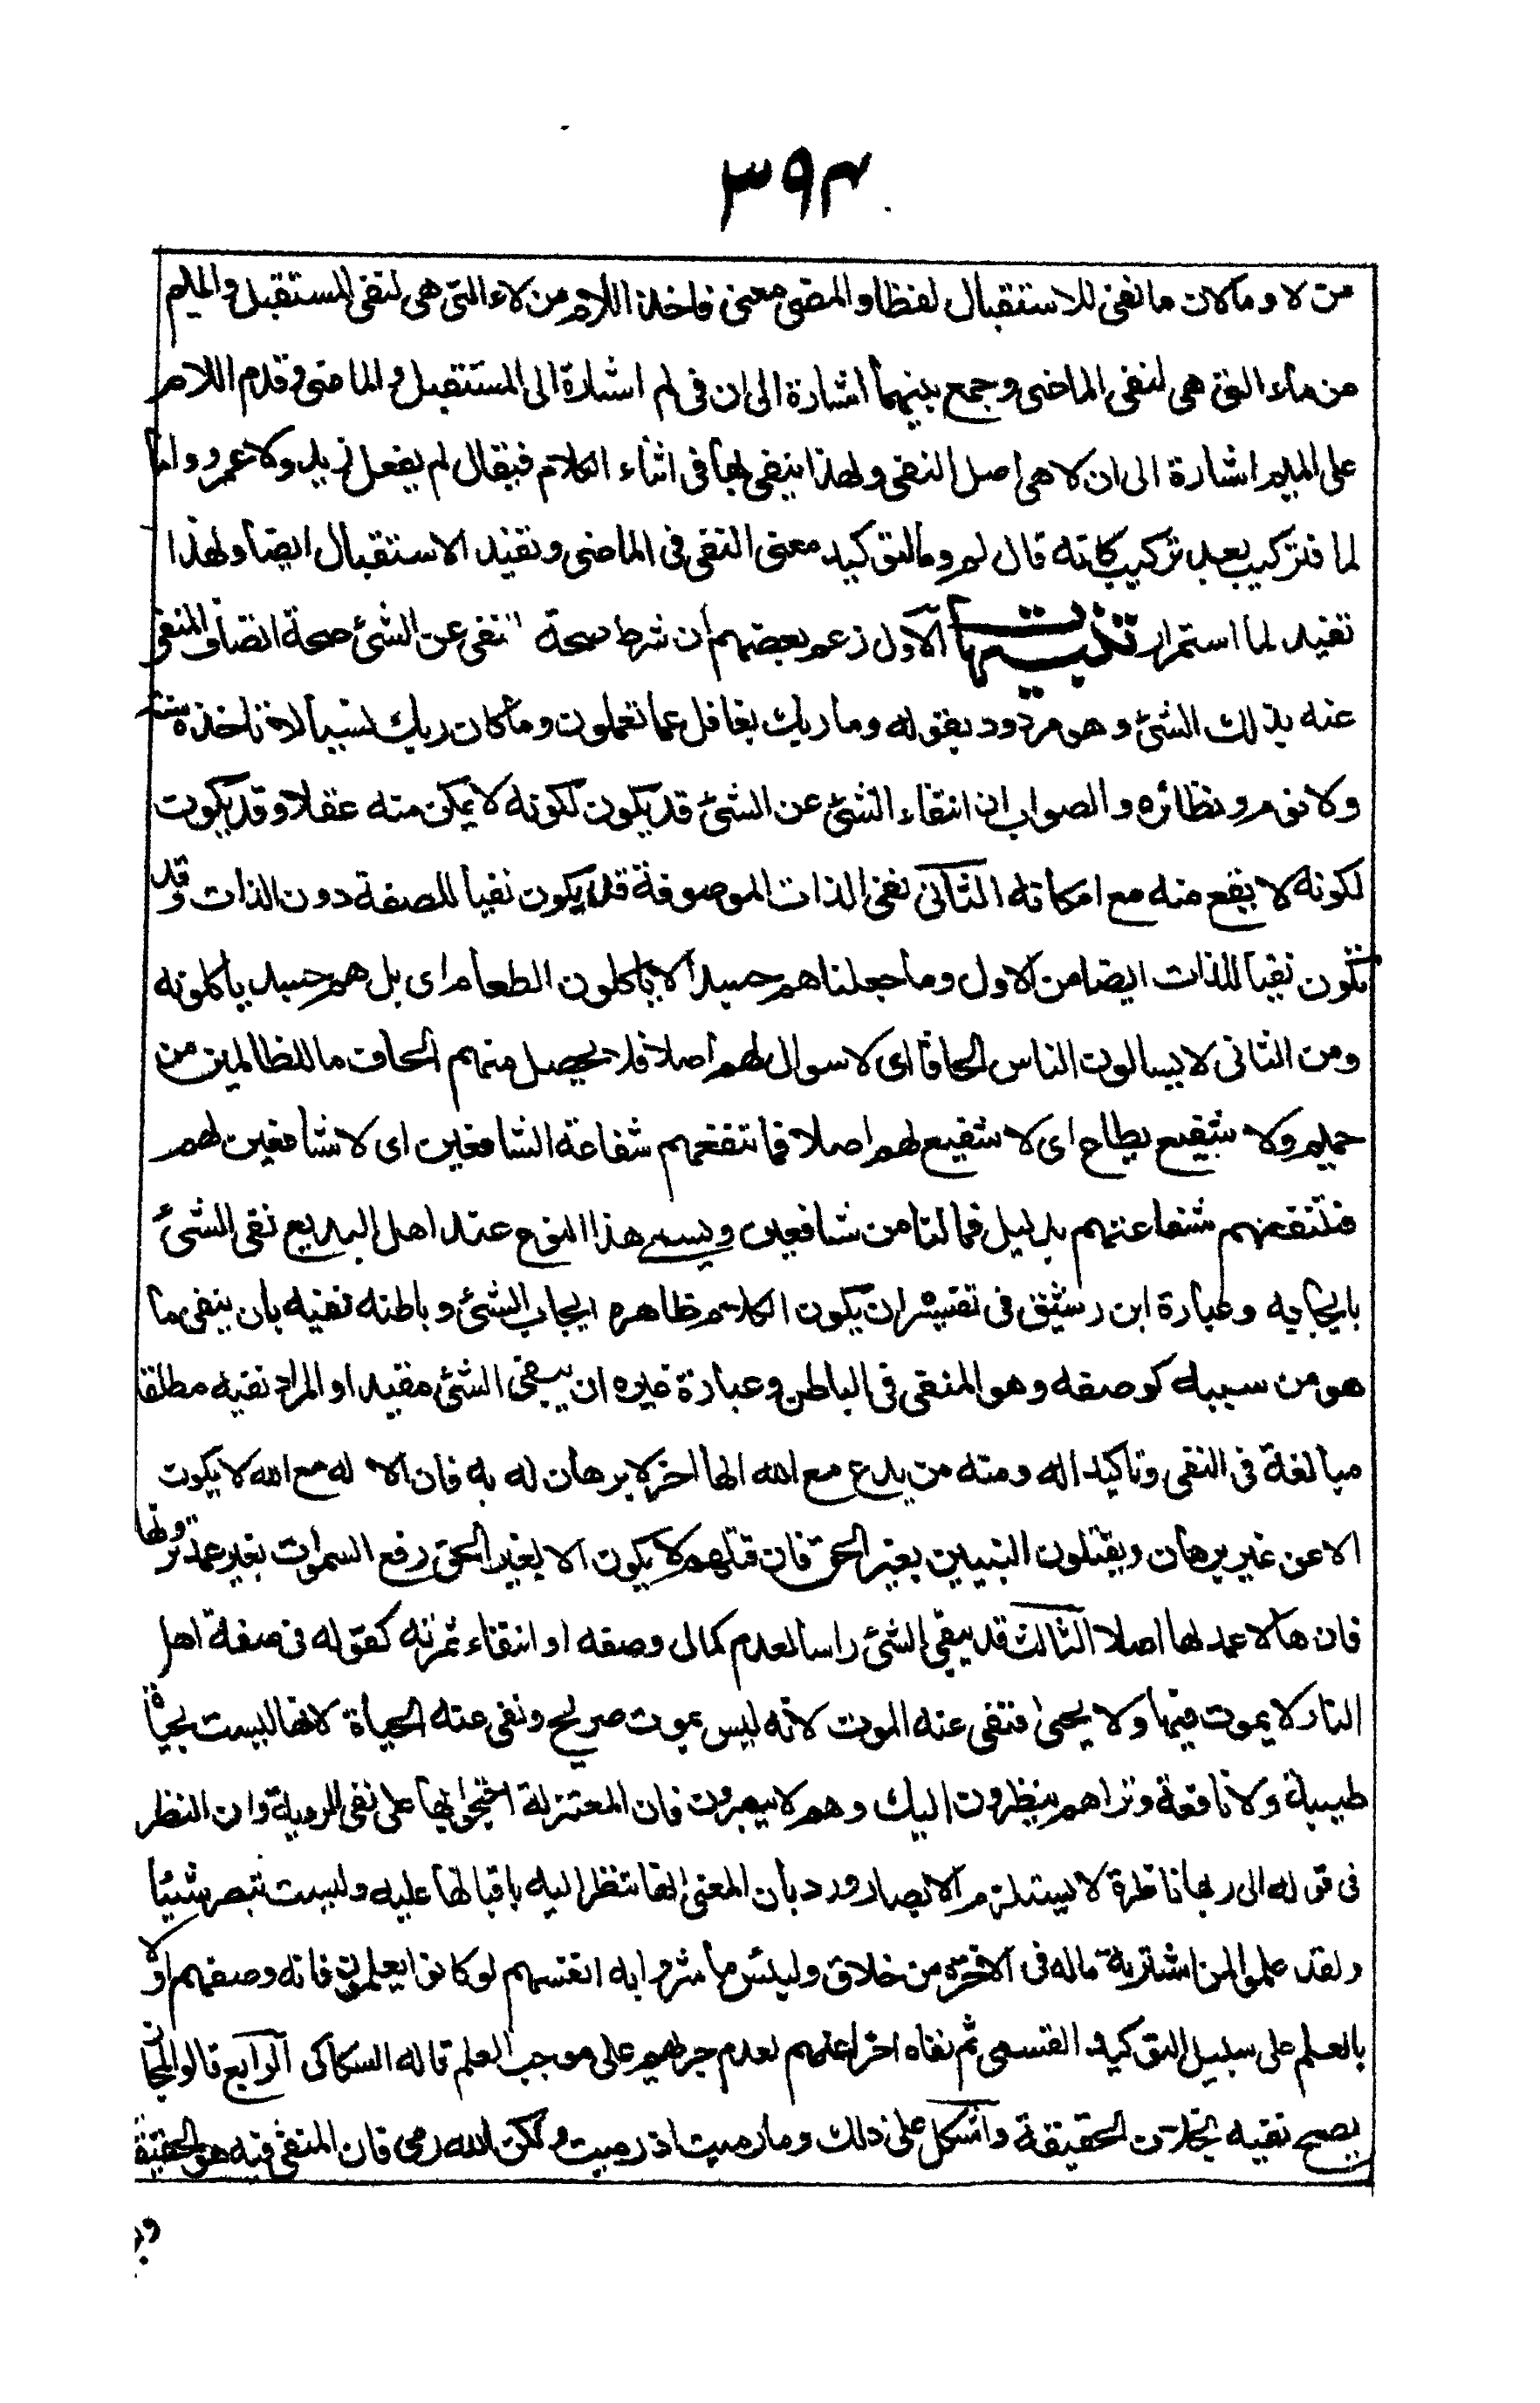 ٣٩٣
من لا وما لان ما نفى للاستقبال لفظا والمضى معنى فاخذ اللام من لا التى هى لنفى المستقبل والميم
من ماء التى هى لنفى الماضى وجمع بينهما اشارة الى ان فى لم اشارة الى المستقبل والماضى وقدم اللام
على الميم اشارة الى ان لا هى اصل النفى ولهذا ينفى بها فى اثناء الكلام فيقال لم يفعل زيد ولا عمرو واما
لما فتركيب بعد تركيب كانه قال لم وما لتوكيد معنى النفى فى الماضى وتفيد الاستقبال ايضا ولهذا
تفيد لما استمرار تنبيهات الاول زعم بعضهم ان شرط صحة النفى عن الشئ صحة اتصاف المنفى
عنه بذلك الشئ وهو مردود بقوله وما ربك بغافل عما تعملون وما كان ربك نسيا لا تاخذه سنة
ولا نوم ونظائره والصواب ان انتفاء الشئ عن الشئ قد يكون لكونه لا يمكن منه عقلا وقد يكون
لكونه لا يقع منه مع امكانه الثانى نفى الذات الموصوفة قد يكون نفيا للصفة دون الذات وقد
يكون نفيا للذات ايضا من الاول وما جعلناهم جسدا لا ياكلون الطعام اى بل هم جسد ياكلونه
ومن الثانى لا يسالون الناس الحافا اى لا سوال لهم اصلا فلا يحصل منهم الحاف ما للظالمين من
حميم ولا شفيع يطاع اى لا شفيع لهم اصلا فما تنفعهم شفاعة الشافعين اى لا شافعين لهم
فتنفعهم شفاعتهم بدليل فما لنا من شافعين ويسمى هذا النوع عند اهل البديع نفى الشئ
بايجابه وعبارة ابن رشيق فى تفسيره ان يكون الكلام ظاهره ايجاب الشئ وباطنه نفيه بان ينفى ما
هو من سببه كوصفه وهو المنفى فى الباطن وعبارة غيره ان ينفى الشئ مقيدا والمراد نفيه مطلقا
مبالغة فى النفى وتاكيدا له ومنه من يدع مع الله الها اخر لا برهان له به فان الاله مع الله لا يكون
الا عن غير برهان ويقتلون النبيين بغير الحق فان قتلهم لا يكون الا بغير الحق رفع السموات بغير عمد ترونها
فانها لا عمد لها اصلا الثالث قد ينفى الشئ راسا لعدم كمال وصفه او انتفاء ثمرته كقوله فى صفة اهل
النار لا يموت فيها ولا يحيى فنفى عنه الموت لانه ليس بموت صريح ونفى عنه الحياة لانها ليست بحياة
طيبة ولا نافعة وتراهم ينظرون اليك وهم لا يبصرون فان المعتزلة احتجوا بها على نفى الروية وان النظر
فى قوله الى ربها ناظرة لا يستلزم الابصار ورد بان المعنى انها تنظر اليه باقبالها عليه وليست تبصر شيئا
ولقد علموا لمن اشتريه ماله فى الاخرة من خلاق ولبئس ما شروا به انفسهم لو كانوا يعلمون فانه وصفهم اولا
بالعلم على سبيل التوكيد القسمى ثم نفاه اخرا عنهم لعدم جريهم على موجب العلم قاله السكاكى الرابع قالوا المجاز
يصح نفيه بخلاف الحقيقة واشكل على ذلك وما رميت اذ رميت ولكن الله رمى فان المنفى فيه هو الحقيقة